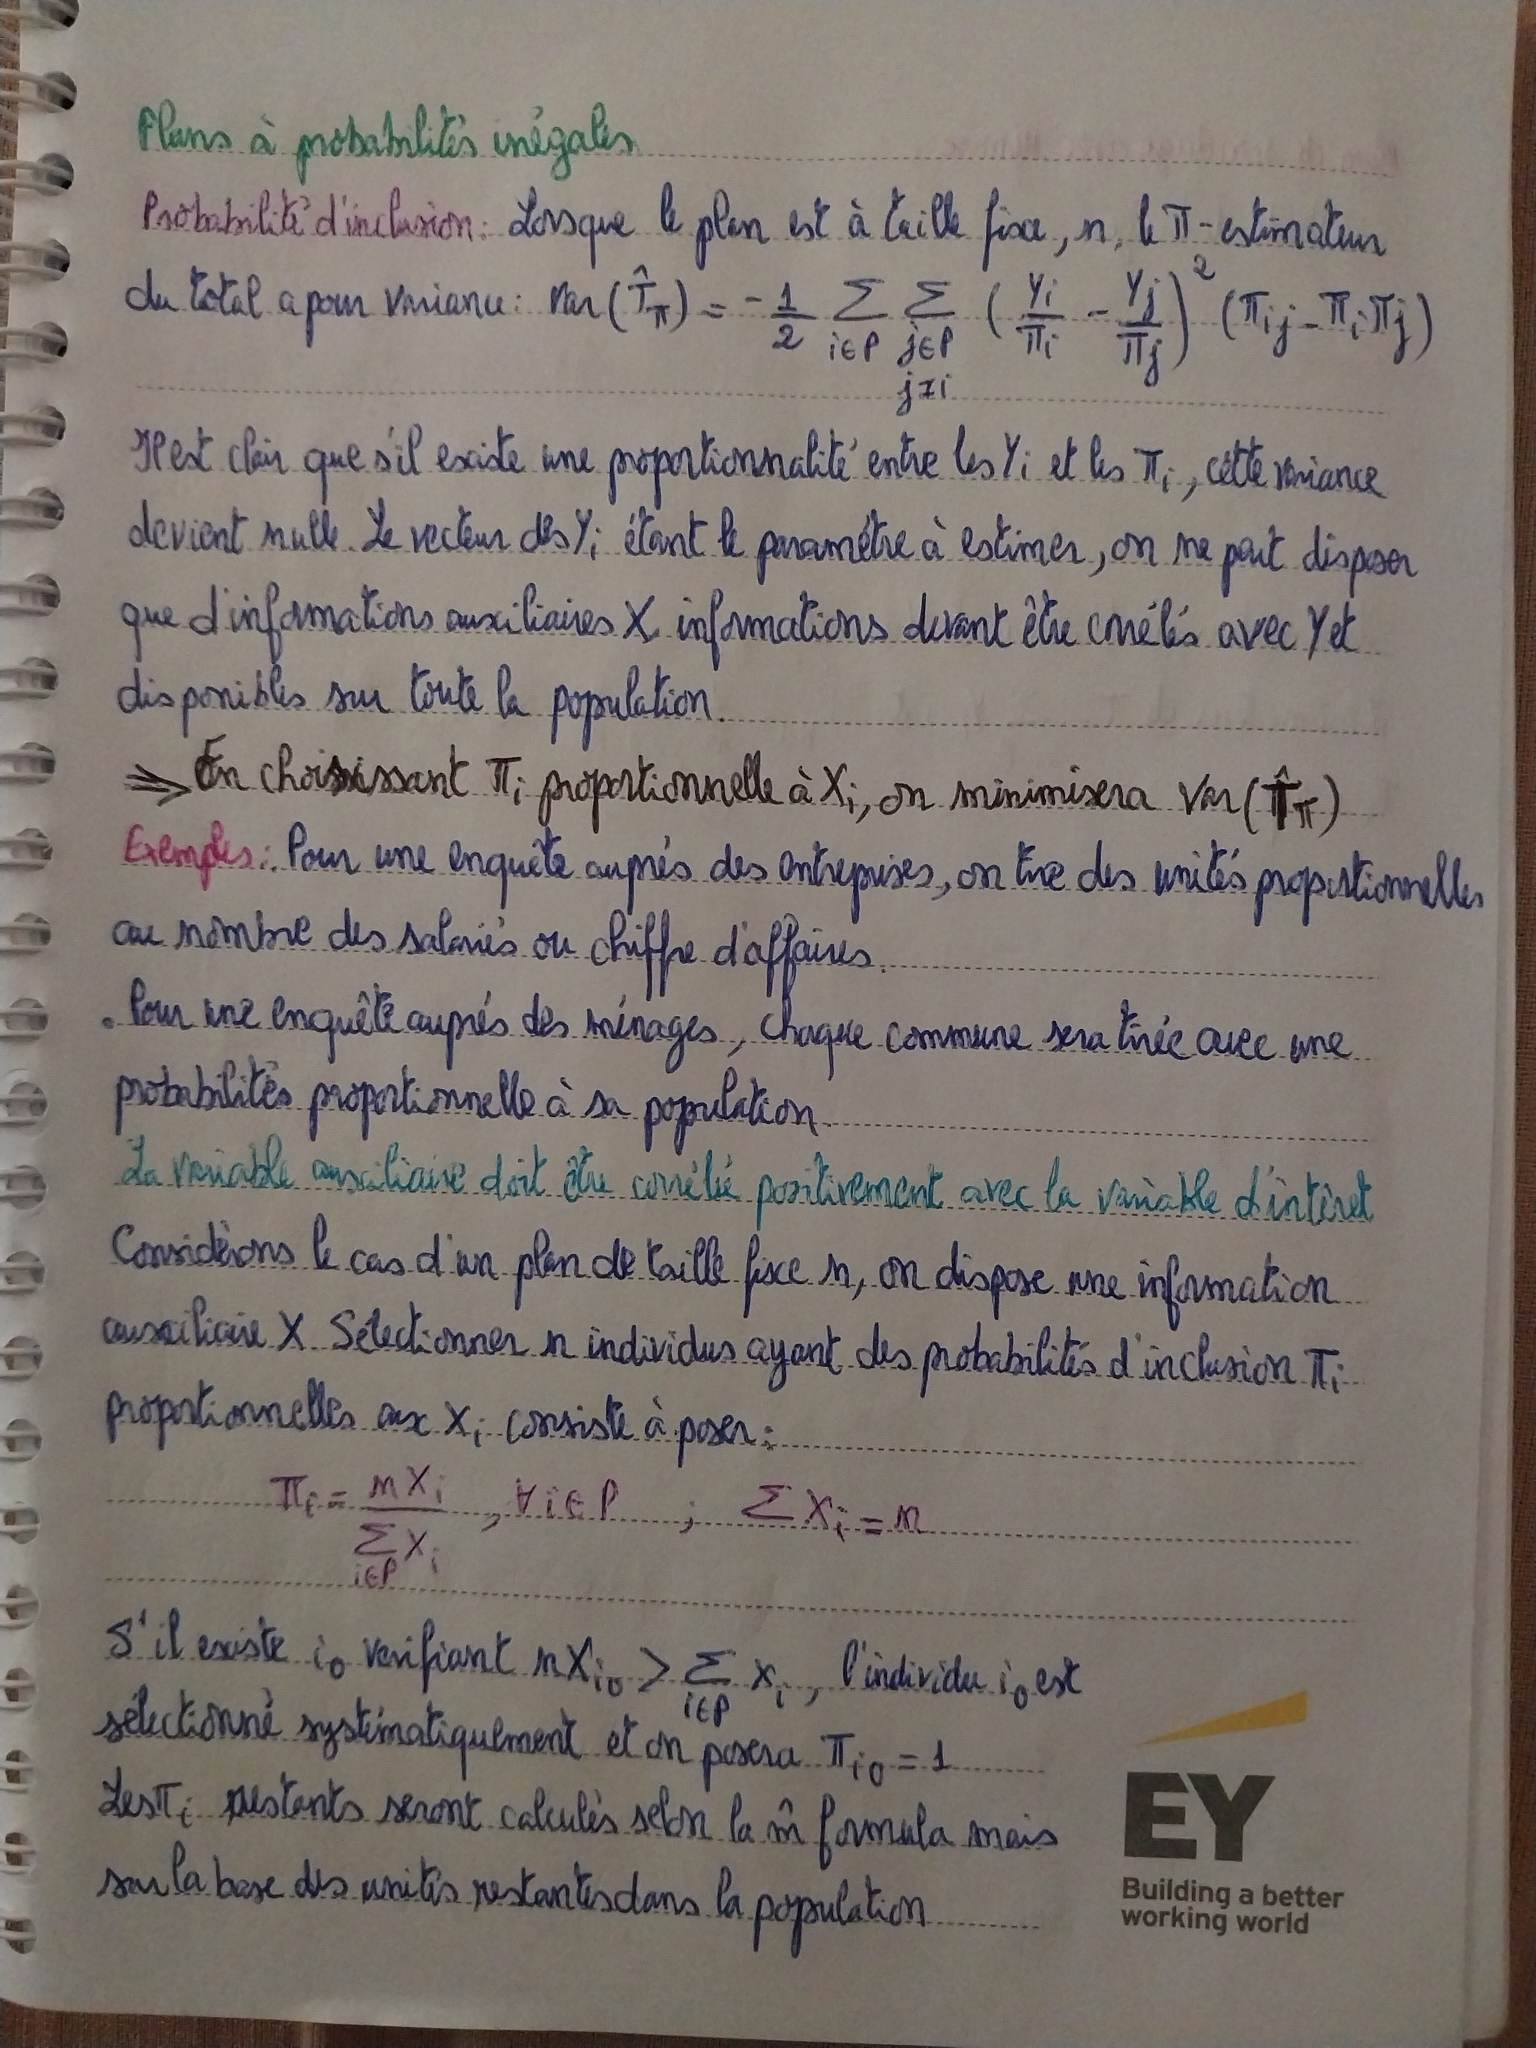 Plans à probabilités inégales
Probabilité d'inclusion: Lorsque le plan est à taille fixe, n, le π-estimateur
du total a pour variance: Var(T̂π) = -1/2 Σ i∈P Σ j∈P j≠i (Yi/πi - Yj/πj)² (πij - πiπj)
Il est clair que s'il existe une proportionnalité entre les Yi et les πi, cette variance
devient nulle. Le vecteur des Yi étant le paramètre à estimer, on ne peut disposer
que d'informations auxiliaires X, informations devant être corrélés avec Y et
disponibles sur toute la population.
=> En choisissant πi proportionnelle à Xi, on minimisera Var(T̂π)
Exemples: Pour une enquête auprés des entreprises, on tire des unités proportionnelles
au nombre des salariés ou chiffre d'affaires.
. Pour une enquête auprés des ménages, chaque commune sera tirée avec une
probabilités proportionnelle à sa population.
La variable auxiliaire doit être corrélée positivement avec la variable d'intêret
Considérons le cas d'un plan de taille fixe n, on dispose une information
auxiliaire X. Sélectionner n individus ayant des probabilités d'inclusion πi
proportionnelles aux Xi consiste à poser:
πi = nXi / Σ i∈P Xi , ∀ i∈P ; Σ Xi = n
S'il existe i₀ verifiant nXi₀ > Σ i∈P Xi, l'individu i₀ est
sélectionné systématiquement et on posera πi₀ = 1
Les πi restants seront calculés selon la m̂ formula mais
sur la base des unités restantes dans la population
EY
Building a better
working world